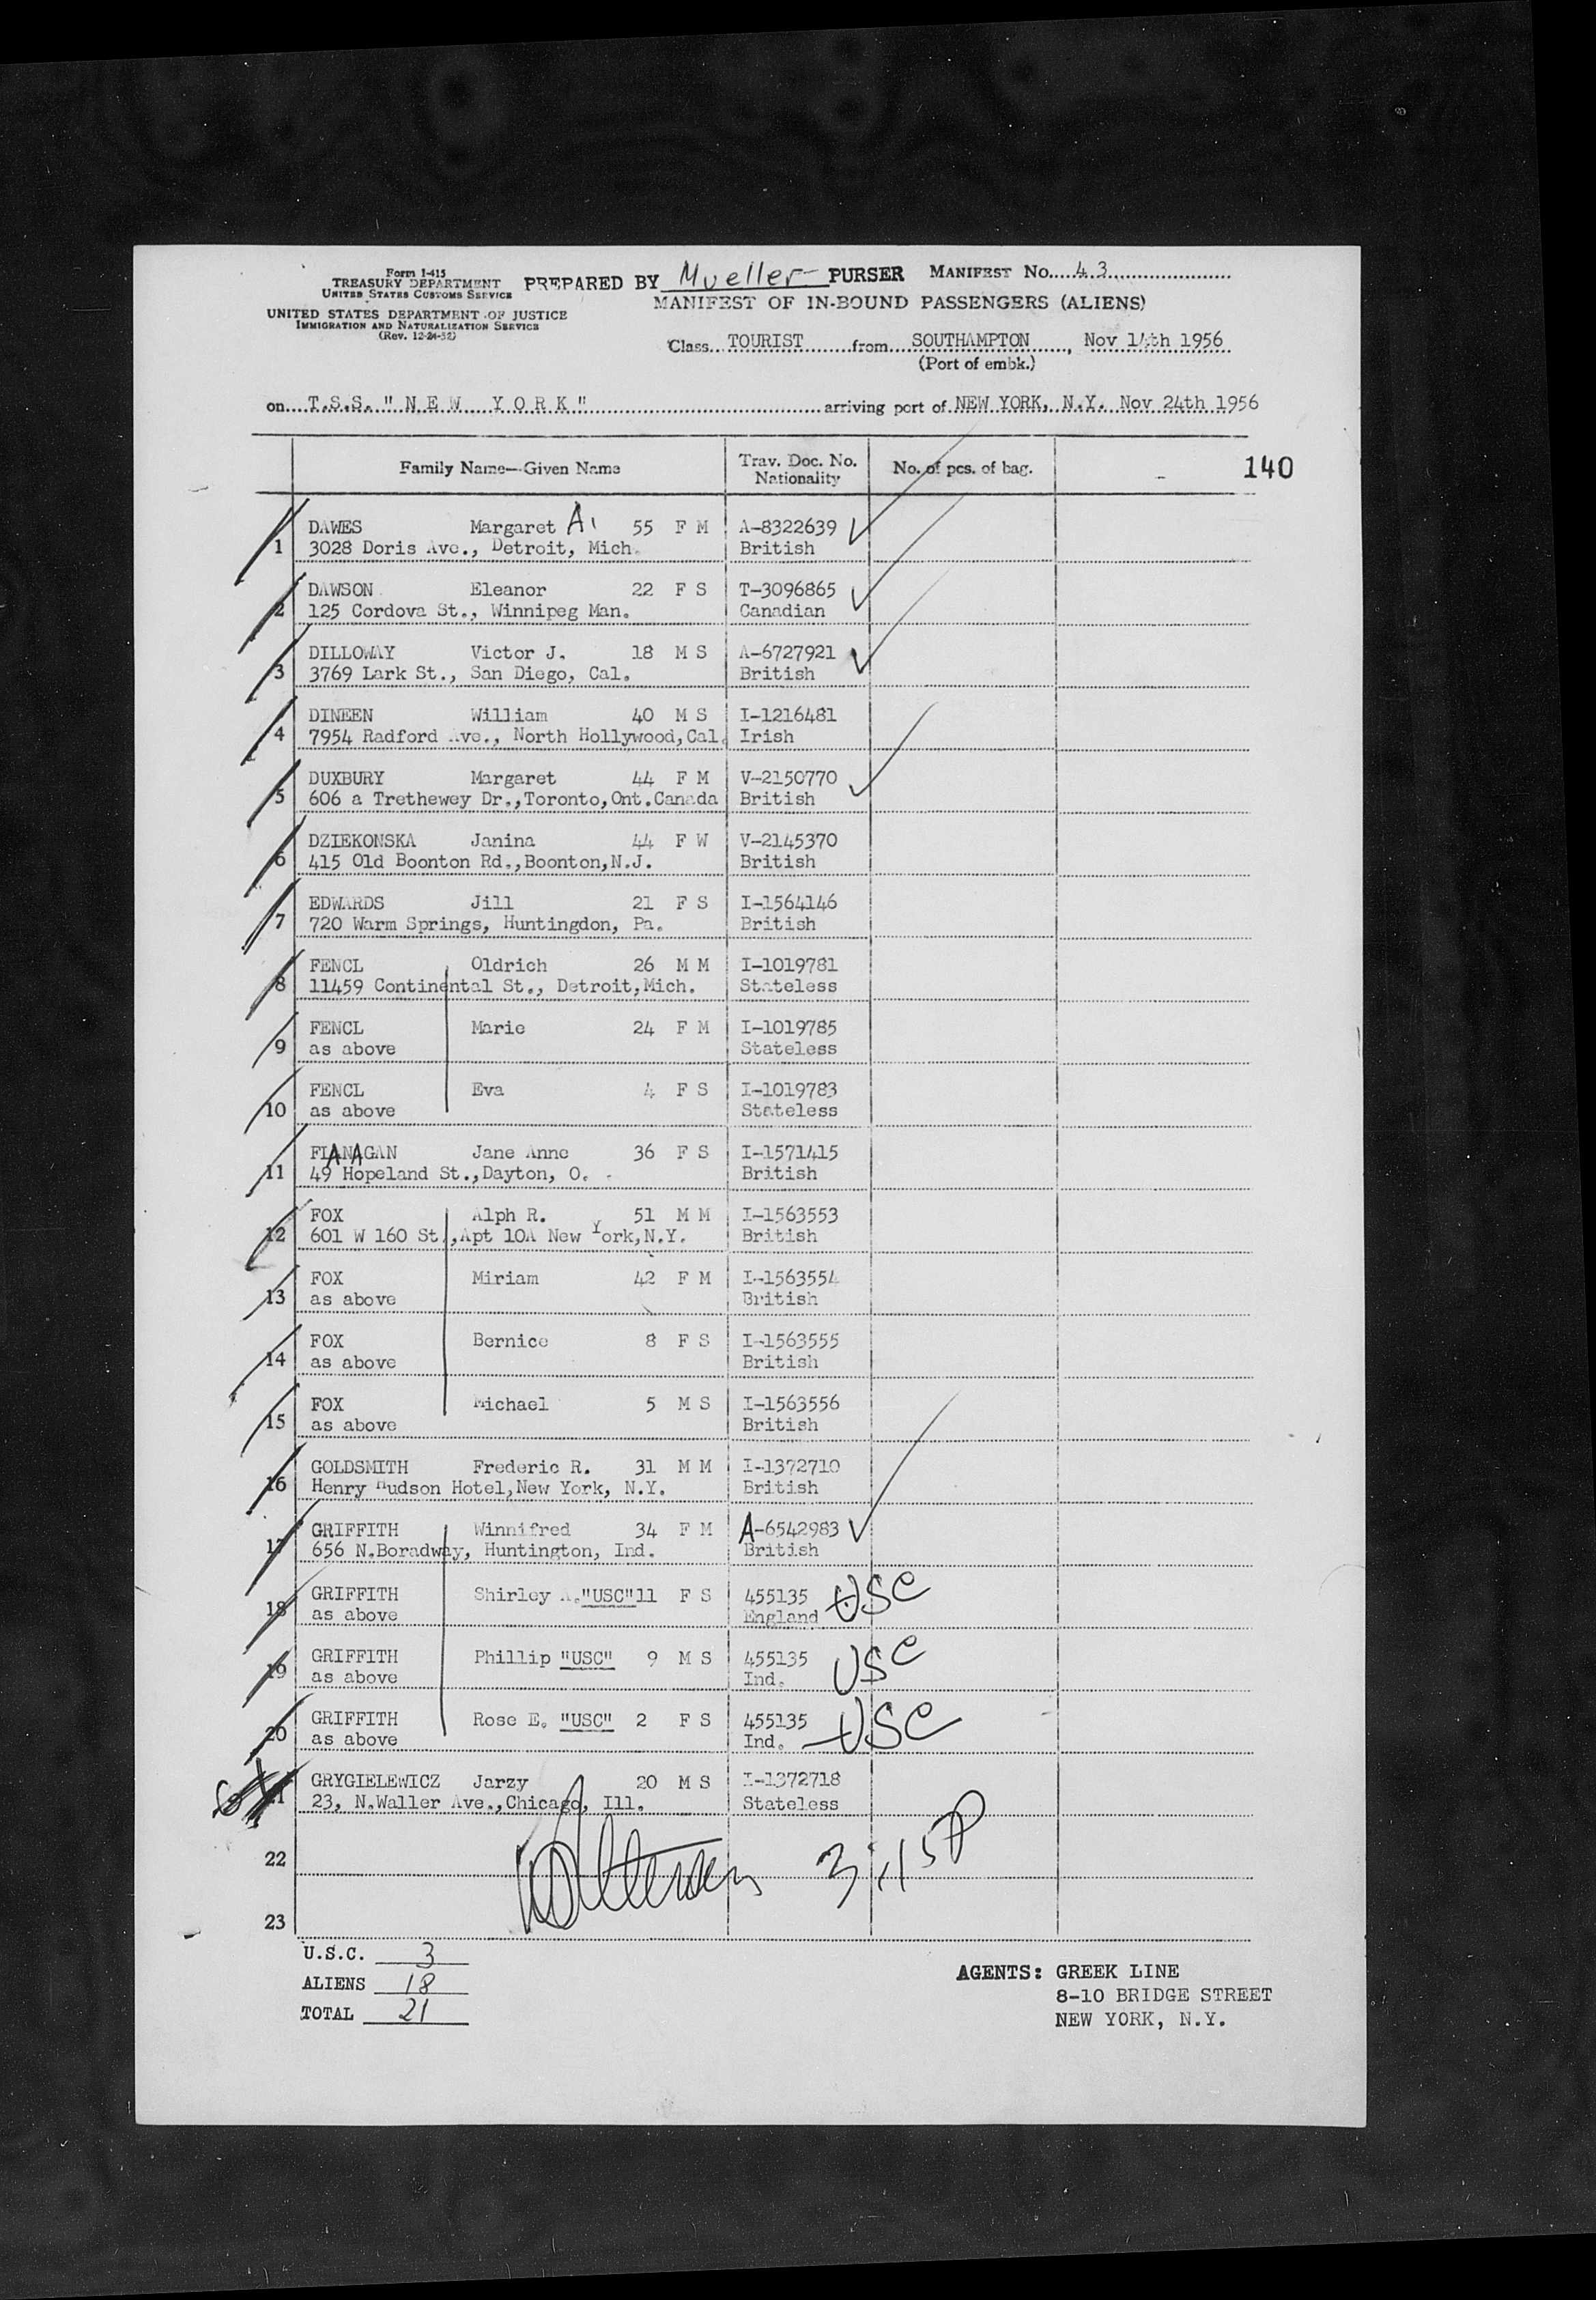 Form I-415
TREASURY DEPARTMENT
UNITED STATES CUSTOMS SERVICE
UNITED STATES DEPARTMENT OF JUSTICE
IMMIGRATION AND NATURALIZATION SERVICE
(Rev. 12-24-52)
PREPARED BY Mueller PURSER MANIFEST No. 43
MANIFEST OF IN-BOUND PASSENGERS (ALIENS)
Class TOURIST from SOUTHAMPTON, Nov 14th 1956
(Port of embk.)
on T.S.S. "N E W Y O R K" arriving port of NEW YORK, N.Y. Nov 24th 1956
Family Name—Given Name Trav. Doc. No. Nationality No. of pcs. of bag. 140
1 DAWES Margaret A. 55 F M A-8322639
3028 Doris Ave., Detroit, Mich. British
2 DAWSON Eleanor 22 F S T-3096865
125 Cordova St., Winnipeg Man. Canadian
3 DILLOWAY Victor J. 18 M S A-6727921
3769 Lark St., San Diego, Cal. British
4 DINEEN William 40 M S I-1216481
7954 Radford Ave., North Hollywood,Cal. Irish
5 DUXBURY Margaret 44 F M V-2150770
606 a Trethewey Dr.,Toronto,Ont.Canada British
6 DZIEKONSKA Janina 44 F W V-2145370
415 Old Boonton Rd.,Boonton,N.J. British
7 EDWARDS Jill 21 F S I-1564146
720 Warm Springs, Huntingdon, Pa. British
8 FENCL Oldrich 26 M M I-1019781
11459 Continental St., Detroit,Mich. Stateless
9 FENCL Marie 24 F M I-1019785
as above Stateless
10 FENCL Eva 4 F S I-1019783
as above Stateless
11 FLANAGAN Jane Anne 36 F S I-1571415
49 Hopeland St.,Dayton, O. British
12 FOX Alph R. 51 M M I-1563553
601 W 160 St.,Apt 10A New York,N.Y. British
13 FOX Miriam 42 F M I-1563554
as above British
14 FOX Bernice 8 F S I-1563555
as above British
15 FOX Michael 5 M S I-1563556
as above British
16 GOLDSMITH Frederic R. 31 M M I-1372710
Henry Hudson Hotel,New York, N.Y. British
17 GRIFFITH Winnifred 34 F M A-6542983
656 N.Boradway, Huntington, Ind. British
18 GRIFFITH Shirley A."USC"11 F S 455135 USC
as above England
19 GRIFFITH Phillip "USC" 9 M S 455135 USC
as above Ind.
20 GRIFFITH Rose E. "USC" 2 F S 455135 USC
as above Ind.
21 GRYGIELEWICZ Jarzy 20 M S I-1372718
23, N.Waller Ave.,Chicago, Ill. Stateless
22 3:15P
23
U.S.C. 3
ALIENS 18
TOTAL 21
AGENTS: GREEK LINE
8-10 BRIDGE STREET
NEW YORK, N.Y.